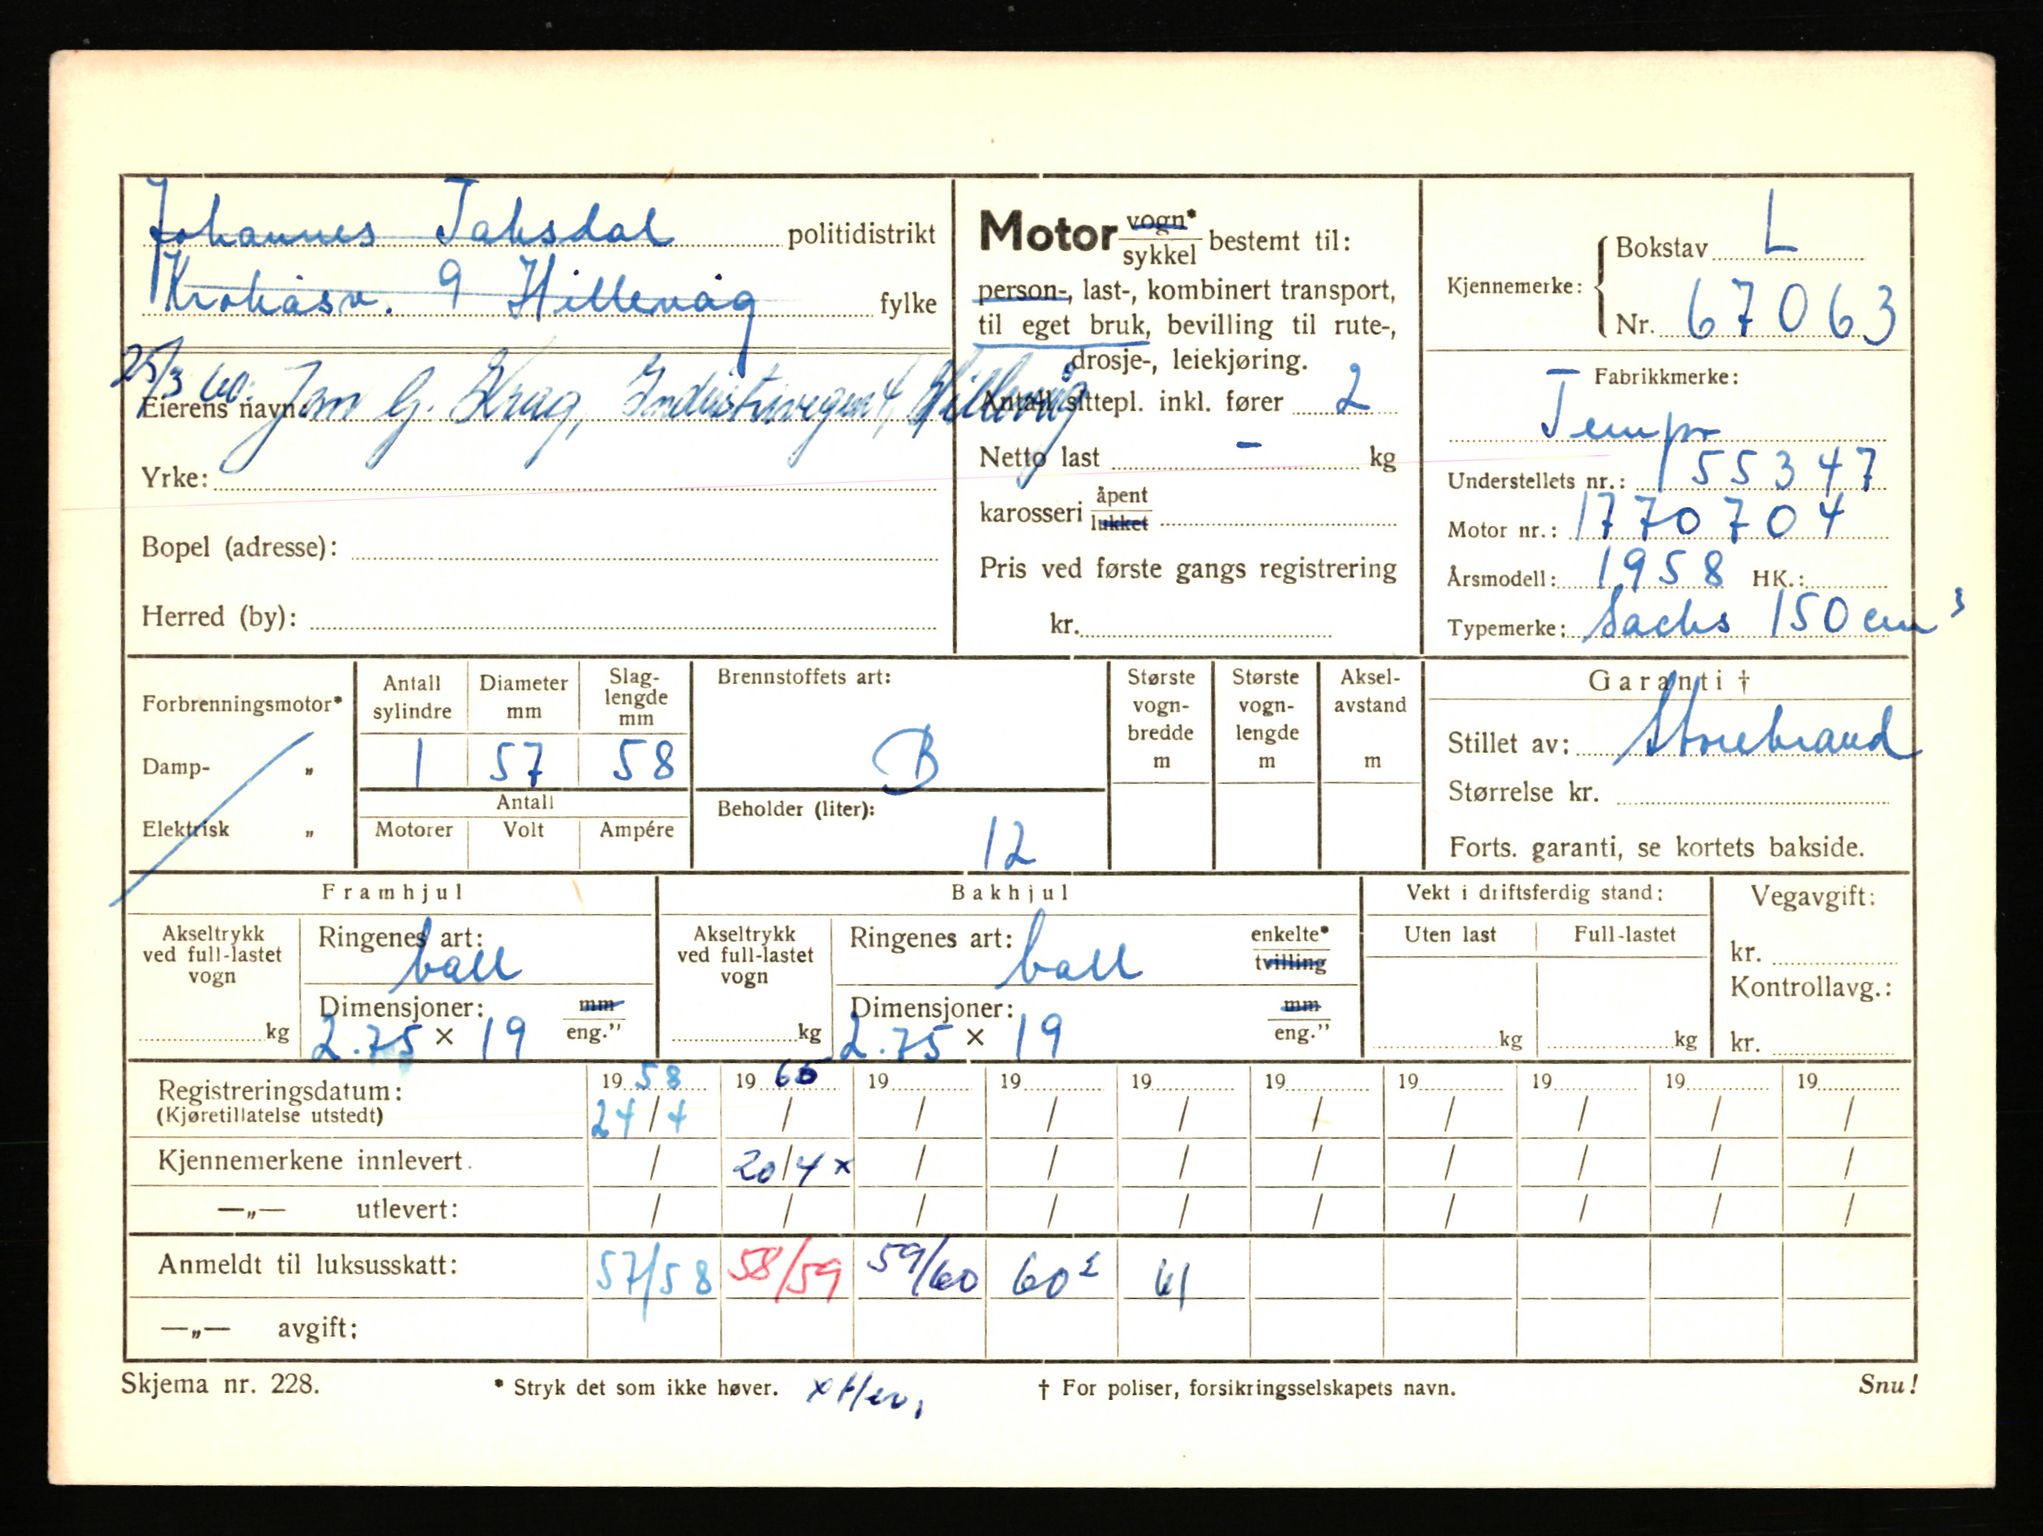 Johannes Taksdal politidistrikt
Krokåsv. 9 Hillevåg fylke
25/3 60: Jan G. Krag, Industrivegen 4, Hillevåg
Eierens navn
Yrke:
Bopel (adresse):
Herred (by):
Motor vogn*
sykkel bestemt til:
person-, last-, kombinert transport,
til eget bruk, bevilling til rute-,
drosje-, leiekjøring.
Antall sittepl. inkl. fører 2
Netto last - kg
karosseri åpent
lukket
Pris ved første gangs registrering
kr.
Kjennemerke: Bokstav L
Nr. 67063
Fabrikkmerke:
Tempo
Understellets nr.: 155347
Motor nr.: 1770704
Årsmodell: 1958 HK.:
Typemerke: Sachs 150 cm³
Forbrenningsmotor*
Damp- „
Elektrisk „
Antall sylindre Diameter mm Slag-lengde mm
1 57 58
Antall
Motorer Volt Ampére
Brennstoffets art:
B
Beholder (liter):
12
Største vogn-bredde m
Største vogn-lengde m
Aksel-avstand m
Garanti †
Stillet av: Storebrand
Størrelse kr.
Forts. garanti, se kortets bakside.
Framhjul
Akseltrykk ved full-lastet vogn
kg
Ringenes art: ball
Dimensjoner: mm
2.75 × 19 eng.”
Bakhjul
Akseltrykk ved full-lastet vogn
kg
Ringenes art: ball enkelte*
tvilling
Dimensjoner: mm
2.75 × 19 eng.”
Vekt i driftsferdig stand:
Uten last Full-lastet
kg kg
Vegavgift:
kr.
Kontrollavg.:
kr.
Registreringsdatum: 19 58 19 60 19 19 19 19 19 19 19 19
(Kjøretillatelse utstedt) 24/4 / / / / / / / / /
Kjennemerkene innlevert. / 20/4 x / / / / / / / /
—„— utlevert: / / / / / / / / / /
Anmeldt til luksusskatt: 57/58 58/59 59/60 60² 61
—„— avgift:
Skjema nr. 228. * Stryk det som ikke høver. † For poliser, forsikringsselskapets navn. Snu!